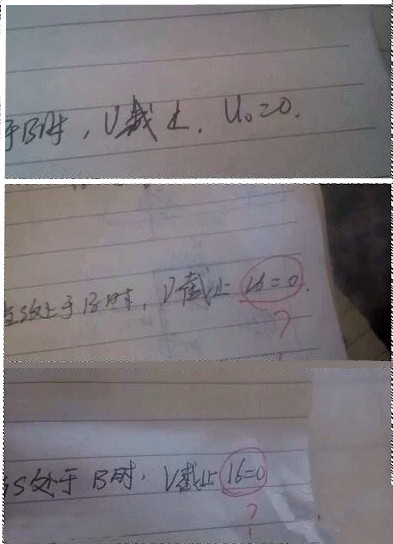 于B时，V截止．U₀=0．
当S处于B时，V截止 16=0．
?
当S处于B时．V截止 16=0
?